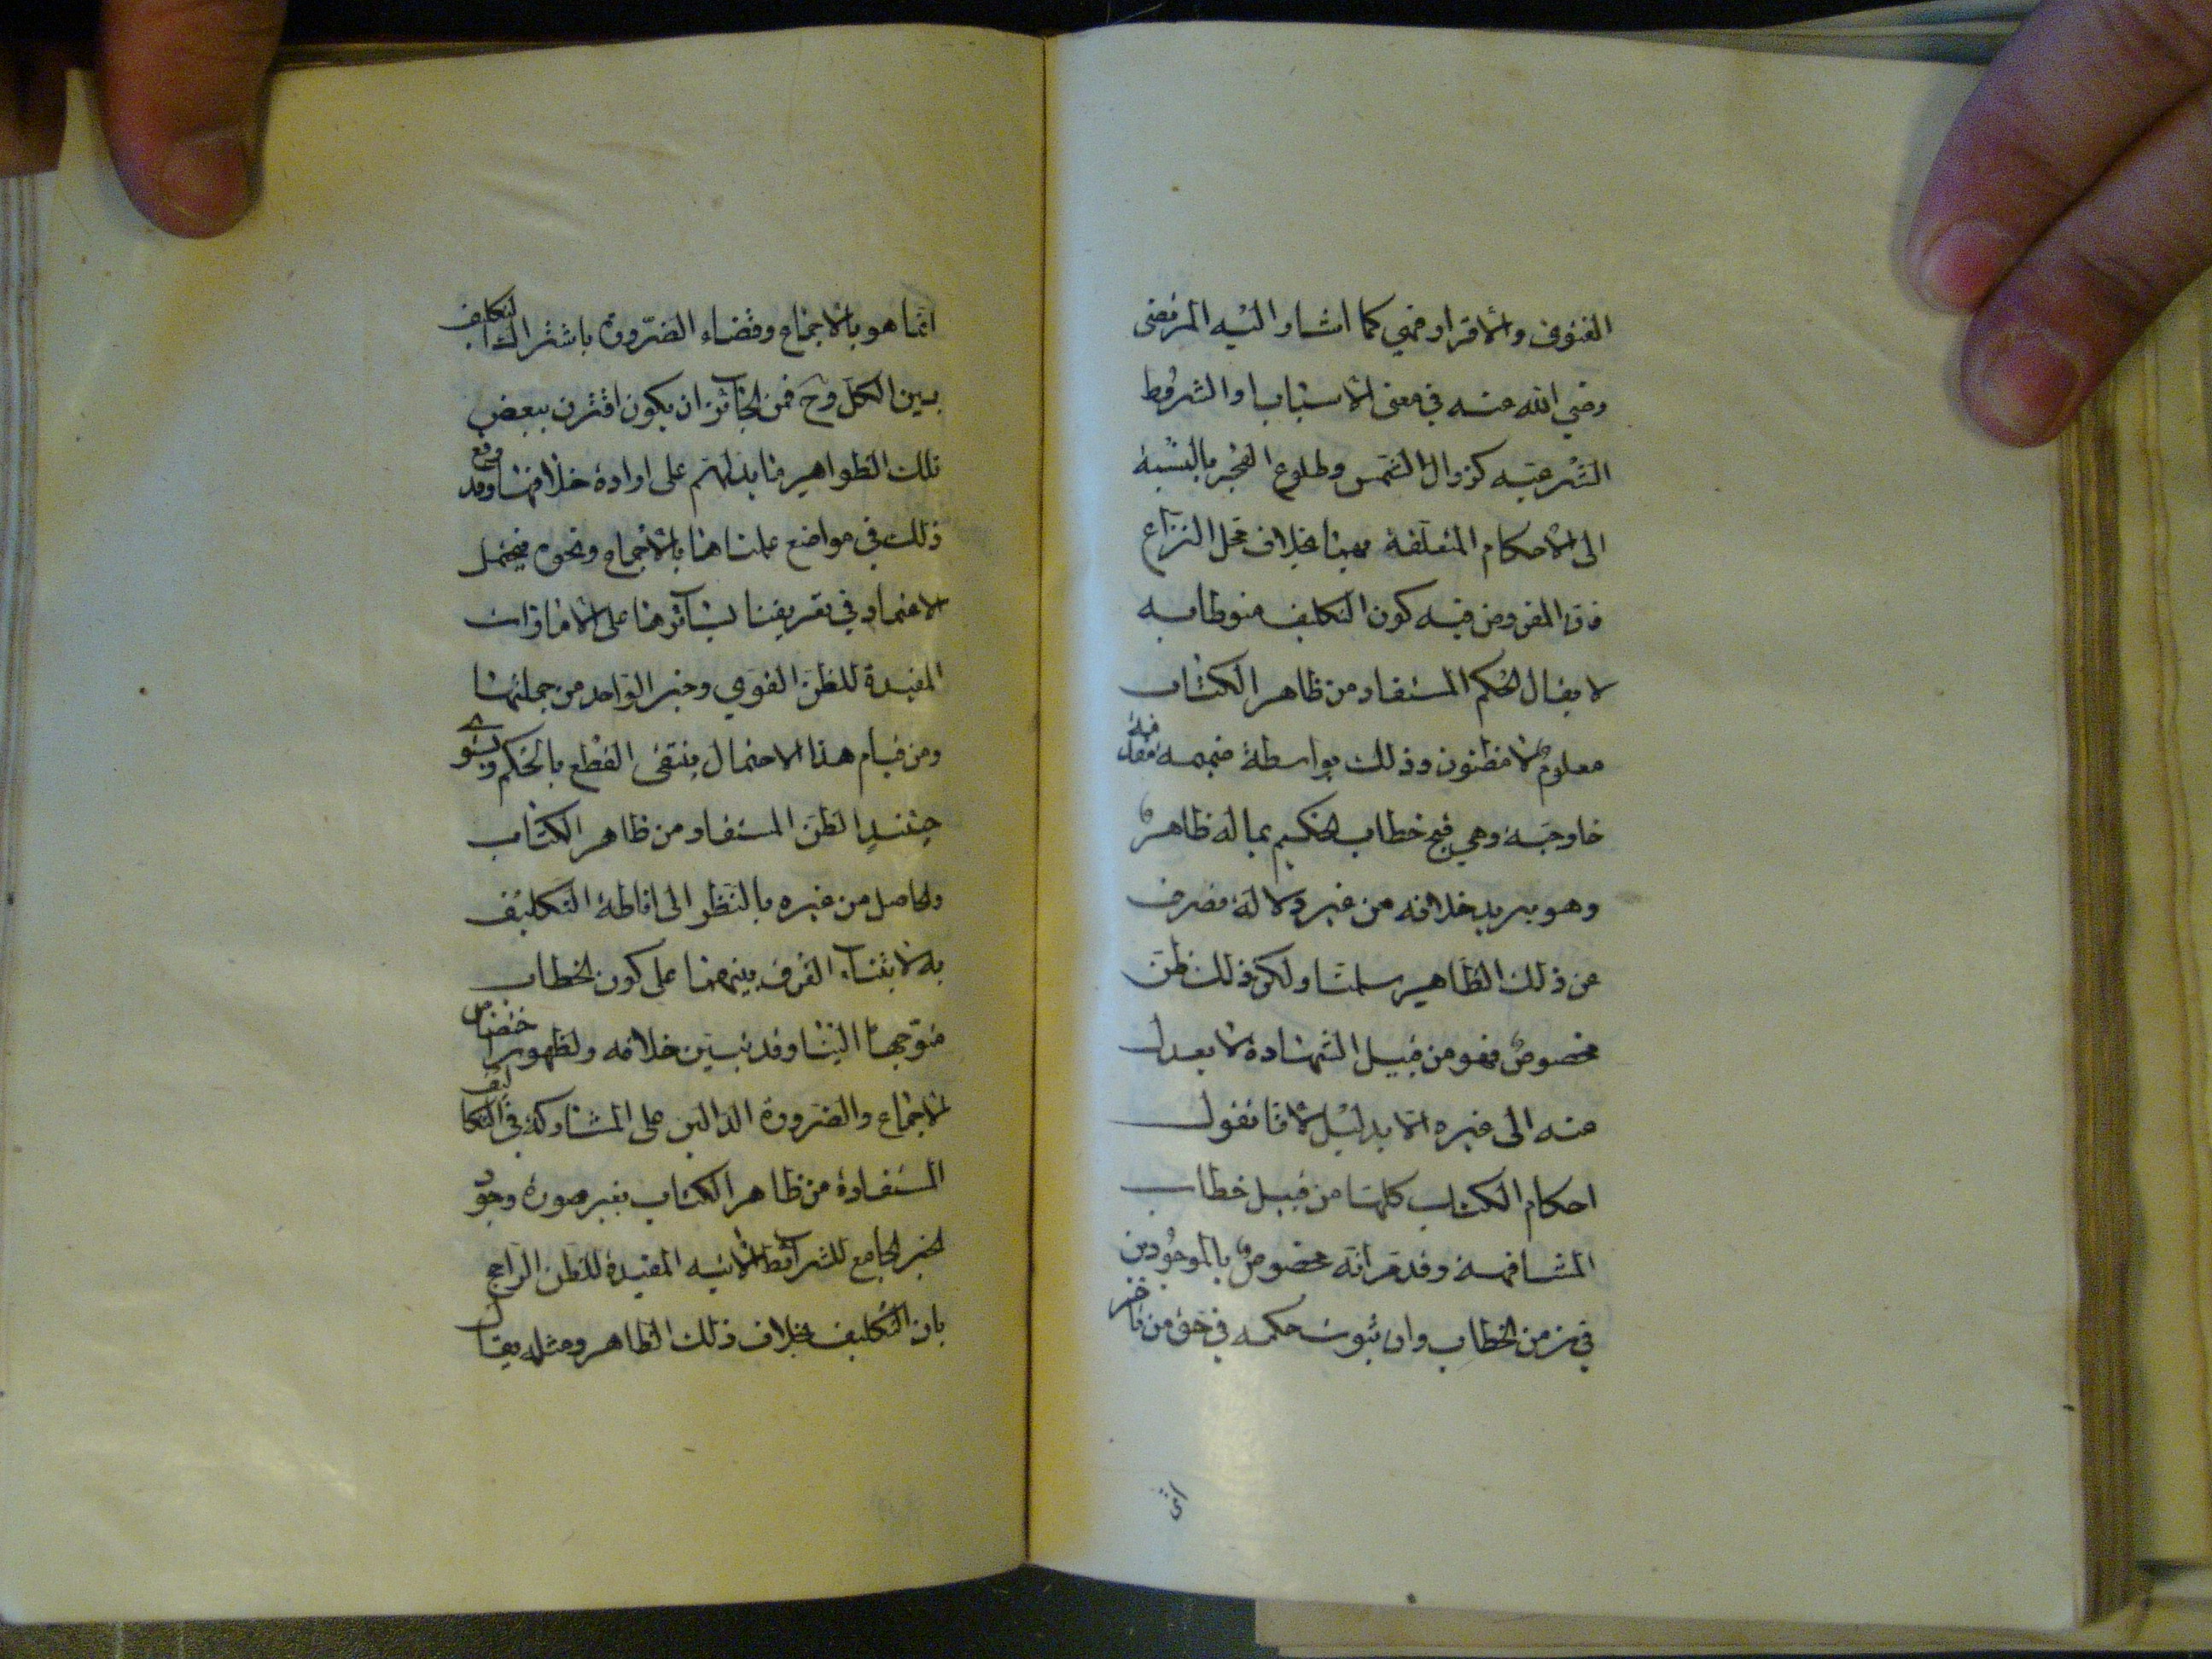 الفتوى والاقرار فهي كما اشار اليه المرتضى
رضي الله عنه في معنى الاسباب او الشروط
الشرعيه كزوال الشمس وطلوع الفجر بالنسبة
الى الاحكام المتعلقة بهما بخلاف محل النزاع
فان المفروض فيه كون التكليف منوطا به
لا يقال الحكم المستفاد من ظاهر الكتاب
معلوم لا مظنون وذلك بواسطة ضميمه مقدمة
خارجية وهي قبح خطاب الحكيم بما له ظاهر
وهو يريد خلافه من غير دلالة تصرف
عن ذلك الظاهر سلمنا ولكن ذلك ظن
مخصوص فهو من قبيل الشهادة لا يعدل
عنه الى غيره الا بدليل لانا نقول
احكام الكتاب كلها من قبيل خطاب
المشافهة وقد مر انه مخصوص بالموجودين
في زمن الخطاب وان ثبوت حكمه في حق من تاخر
انما هو بالاجماع وقضاء الضرورة باشتراك التكليف
بين الكل وح فمن الجائز ان يكون اقترن ببعض
تلك الظواهر ما يدلهم على ارادة خلافها وقد وقع
ذلك في مواضع علمناها بالاجماع ونحوه فيحتمل
الاعتماد في تعريفنا بسائرها على الامارات
المفيدة للظن القوي وخبر الواحد من جملتها
ومن قيام هذا الاحتمال ينتفى القطع بالحكم ويستوي
حينئذ الظن المستفاد من ظاهر الكتاب
والحاصل من غيره بالنظر الى اناطة التكليف
به لابتناء الفرق بينهما على كون الخطاب
متوجها الينا وقد تبين خلافه ولظهور اختصاص
الاجماع والضرورة الدالين على المشاركة في التكاليف
المستفادة من ظاهر الكتاب بغير صورة وجود
الخبر الجامع للشرائط الاتية المفيدة للظن الراجح
بان التكليف بخلاف ذلك الظاهر ومثله يقال